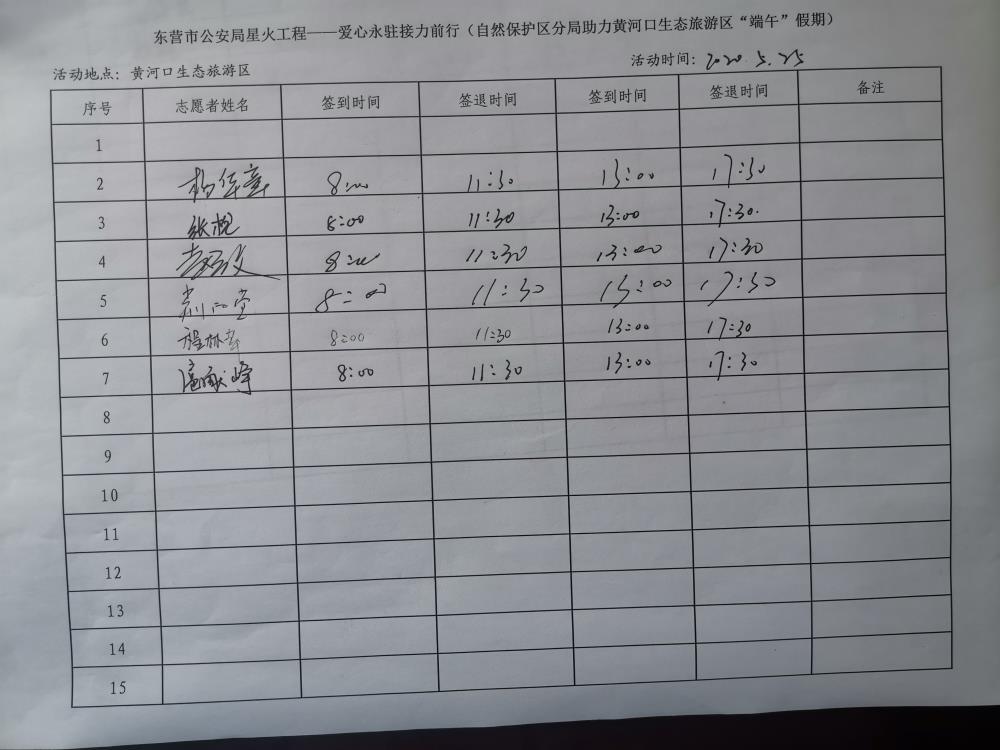 东营市公安局星火工程——爱心永驻接力前行（自然保护区分局助力黄河口生态旅游区“端午”假期）
活动地点：黄河口生态旅游区 活动时间：2020.5.25
序号 志愿者姓名 签到时间 签退时间 签到时间 签退时间 备注
1
2 8:00 11:30 13:00 17:30
3 8:00 11:30 13:00 17:30.
4 8:00 11:30 13:00 17:30
5 8:00 11:30 13:00 17:30
6 8:00 11:30 13:00 17:30
7 8:00 11:30 13:00 17:30
8
9
10
11
12
13
14
15